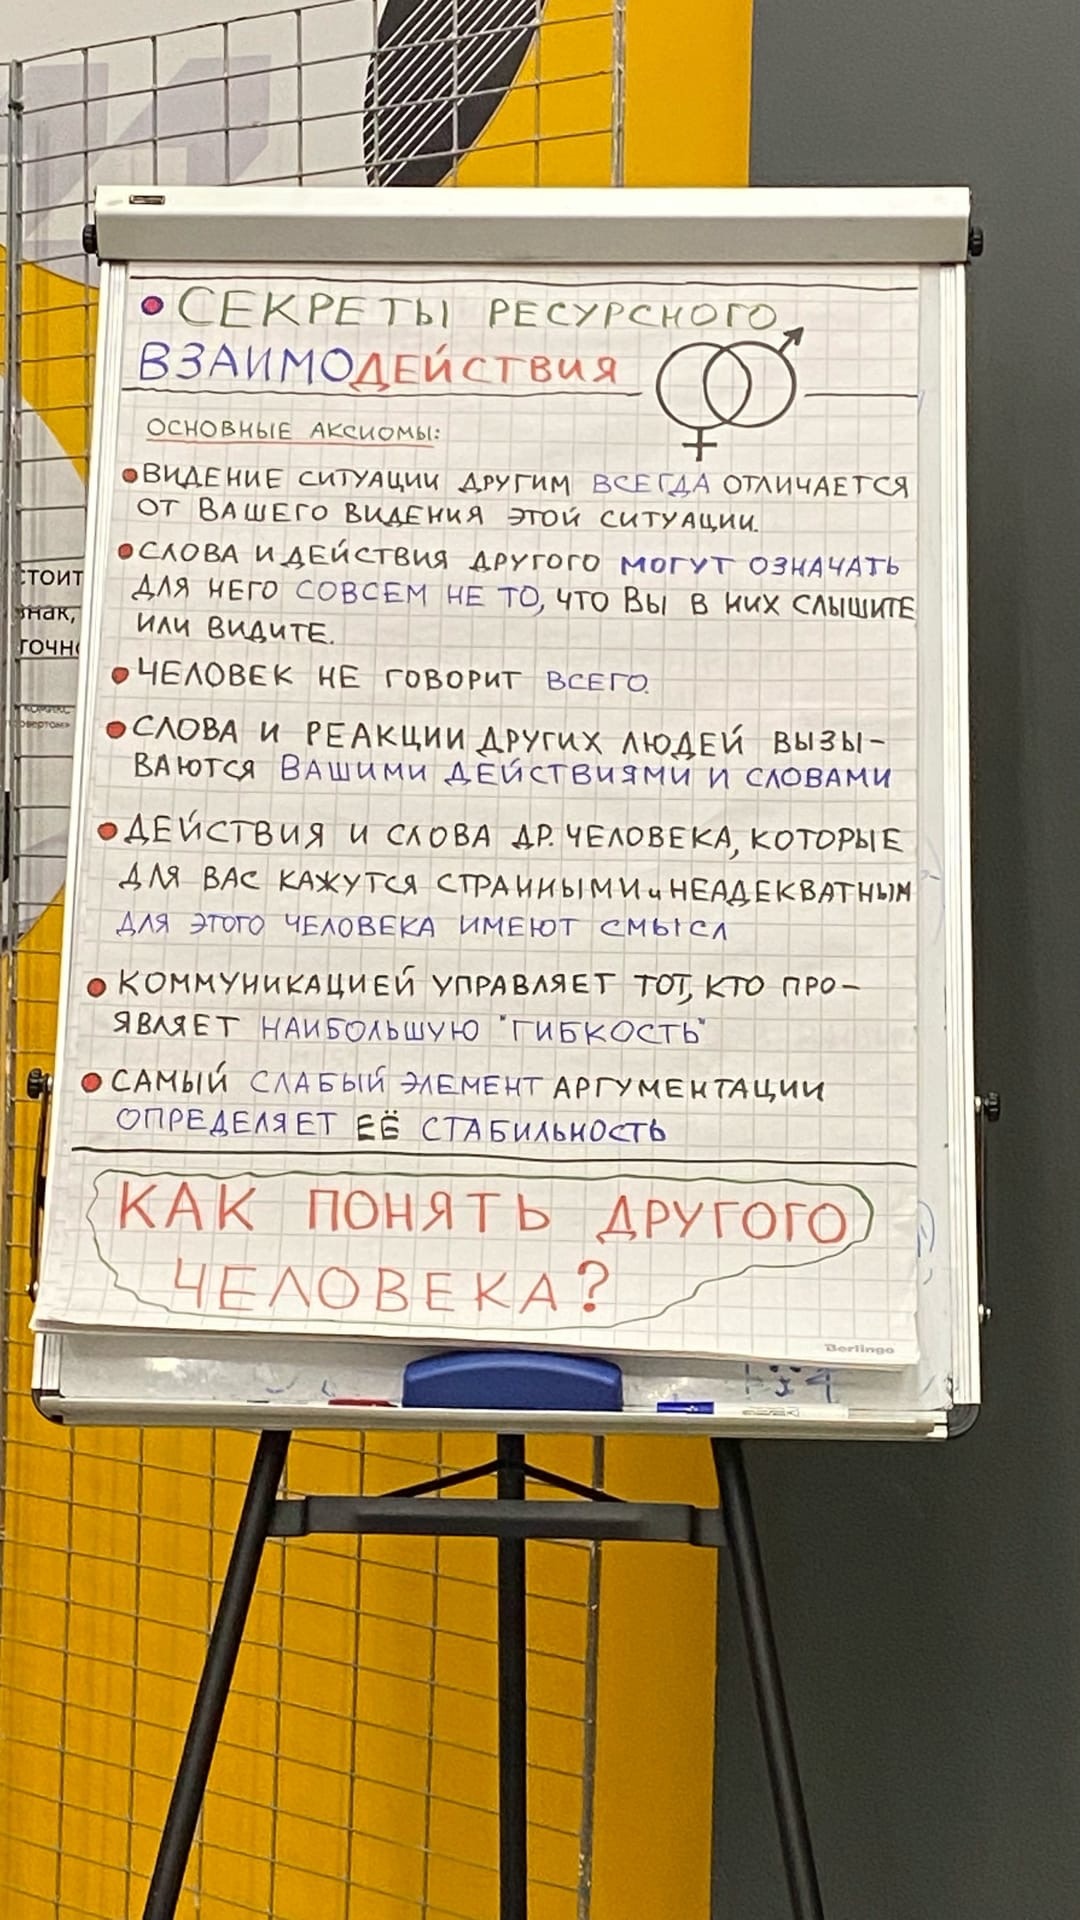 • СЕКРЕТЫ РЕСУРСНОГО
ВЗАИМОДЕЙСТВИЯ
ОСНОВНЫЕ АКСИОМЫ:
• ВИДЕНИЕ СИТУАЦИИ ДРУГИМ ВСЕГДА ОТЛИЧАЕТСЯ
ОТ ВАШЕГО ВИДЕНИЯ ЭТОЙ СИТУАЦИИ.
• СЛОВА И ДЕЙСТВИЯ ДРУГОГО МОГУТ ОЗНАЧАТЬ
ДЛЯ НЕГО СОВСЕМ НЕ ТО, ЧТО ВЫ В НИХ СЛЫШИТЕ
ИЛИ ВИДИТЕ.
• ЧЕЛОВЕК НЕ ГОВОРИТ ВСЕГО.
• СЛОВА И РЕАКЦИИ ДРУГИХ ЛЮДЕЙ ВЫЗЫ-
ВАЮТСЯ ВАШИМИ ДЕЙСТВИЯМИ И СЛОВАМИ
• ДЕЙСТВИЯ И СЛОВА ДР. ЧЕЛОВЕКА, КОТОРЫЕ
ДЛЯ ВАС КАЖУТСЯ СТРАННЫМИ и НЕАДЕКВАТНЫМ
ДЛЯ ЭТОГО ЧЕЛОВЕКА ИМЕЮТ СМЫСЛ
• КОММУНИКАЦИЕЙ УПРАВЛЯЕТ ТОТ, КТО ПРО-
ЯВЛЯЕТ НАИБОЛЬШУЮ "ГИБКОСТЬ"
• САМЫЙ СЛАБЫЙ ЭЛЕМЕНТ АРГУМЕНТАЦИИ
ОПРЕДЕЛЯЕТ ЕЁ СТАБИЛЬНОСТЬ
КАК ПОНЯТЬ ДРУГОГО
ЧЕЛОВЕКА?
Berlingo
стоит
знак,